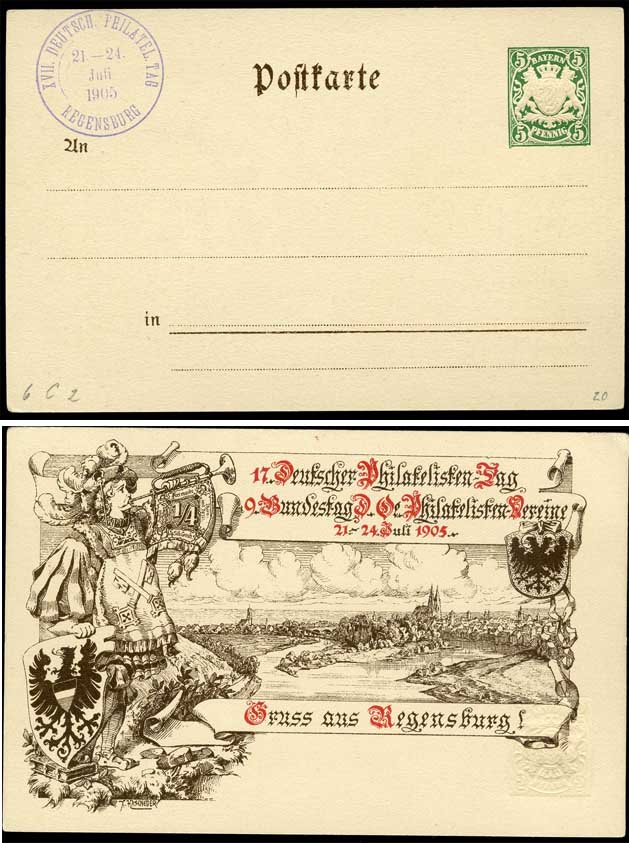 XVII. DEUTSCH. PHILATEL. TAG
21.–24.
Juli
1905
REGENSBURG
Postkarte
5 BAYERN 5
5 PFENNIG 5
An
in
6 C 2
20
17. Deutscher Philatelisten-Tag
9. Bundestag D. Oe. Philatelisten Vereine
21.-24. Juli 1905.
1/4
Gruss aus Regensburg!